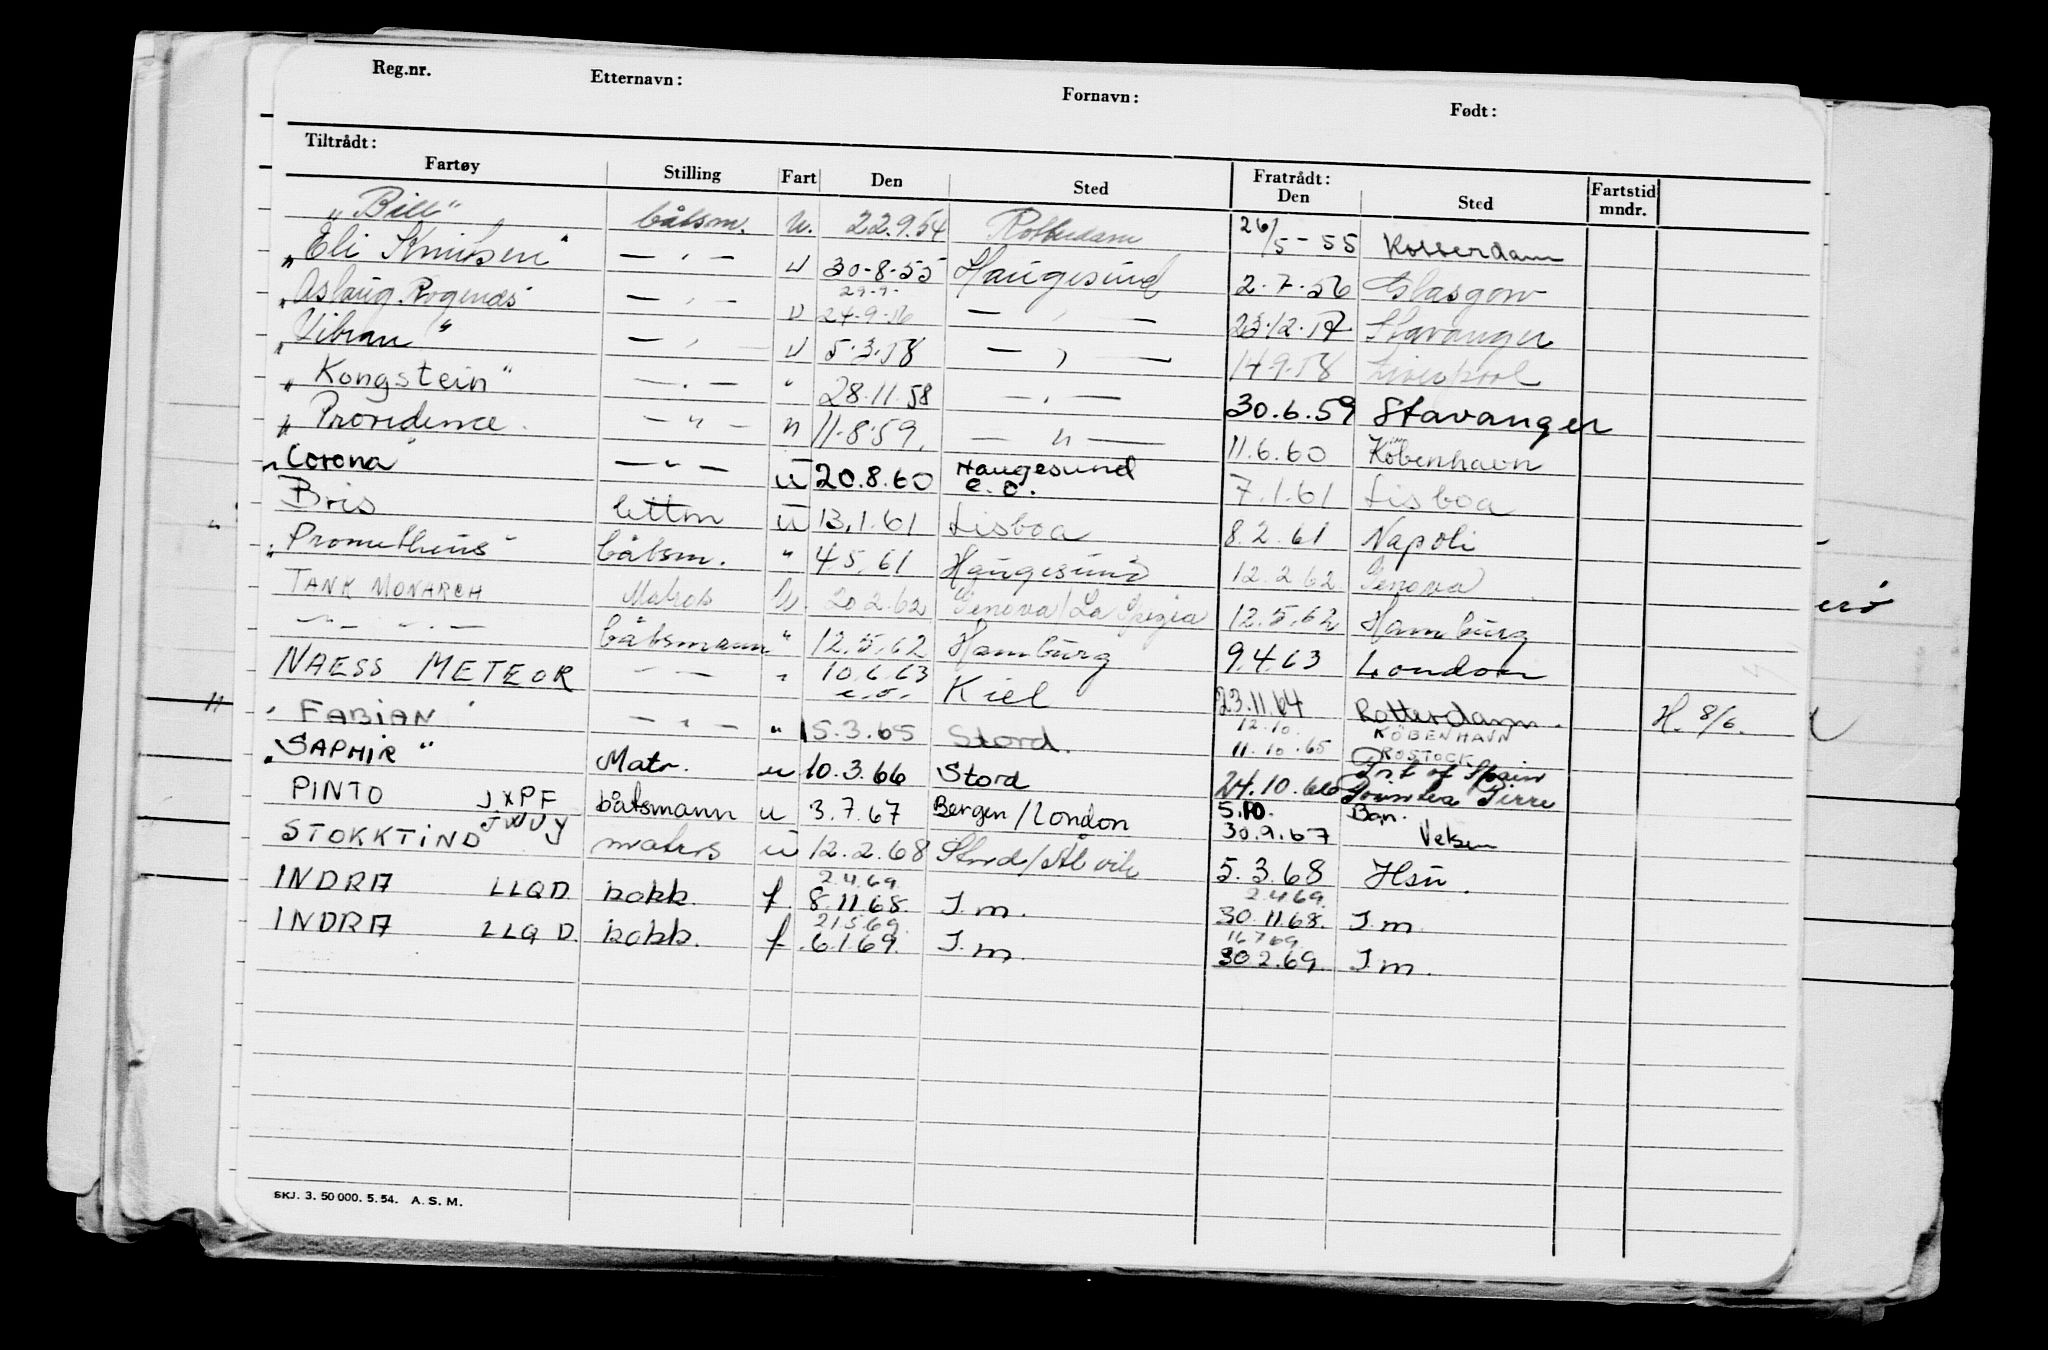 Reg.nr. Etternavn: Fornavn: Født:
Tiltrådt: Fratrådt:
Fartøy Stilling Fart Den Sted Den Sted Fartstid mndr.
"Bill" båtsm. U. 22.9.54 Rotterdam 26/5-55 Rotterdam
"Eli Knudsen" — " — u 30-8-55 Haugesund 2.7.56 Glasgow
29-9-
"Aslaug Rogenæs" — " — u 24-9-56 — " — 23.12.57 Stavanger
"Vibran" — " — u 5.3.58 — " — 14.9.58 Liverpool
"Kongstein" — " — " 28.11.58 — " — 30.6.59 Stavanger
"Providence — " — " 11.8.59. — " — 11.6.60 København
"Corona" — " — u 20.8.60 Haugesund e.o. 7.1.61 Lisboa
Bris lettm u 13.1.61 Lisboa 8.2.61 Napoli
"Prometheus" båtsm. " 4.5.61 Haugesund 12.2.62 Genova
TANK MONARCH Matros U. 20.2.62 Genova/La Spezia 12.5.62 Hamburg
— " — " — båtsmann " 12.5.62 Hamburg 9.4.63 London
NAESS METEOR — " — " 10.6.63 e.o. Kiel 23.11.64 Rotterdam. H. 8/6.
12.10. KÖBENHAVN
"FABIAN" — " — " 15.3.65 Stord. 11.10.65 ROSTOCK
"SAPHIR" Matr. u 10.3.66 Stord 24.10.66 Port of Spain
PINTO JXPF båtsmann u 3.7.67 Bergen/London 5.10. Bgn.
30.9.67 Velsen
STOKKTIND JWUY matros u 12.2.68 Stord/Ålvik 5.3.68 Hsu.
2.4.69. 2.4.69.
INDRA LLQD kokk f. 8.11.68. J.m. 30.11.68. J.m.
21.5.69. 16.7.69.
INDRA LLQD. kokk. f. 6.1.69. J.m. 30.2.69. J.m.
SKJ. 3. 50 000. 5. 54. A. S. M.